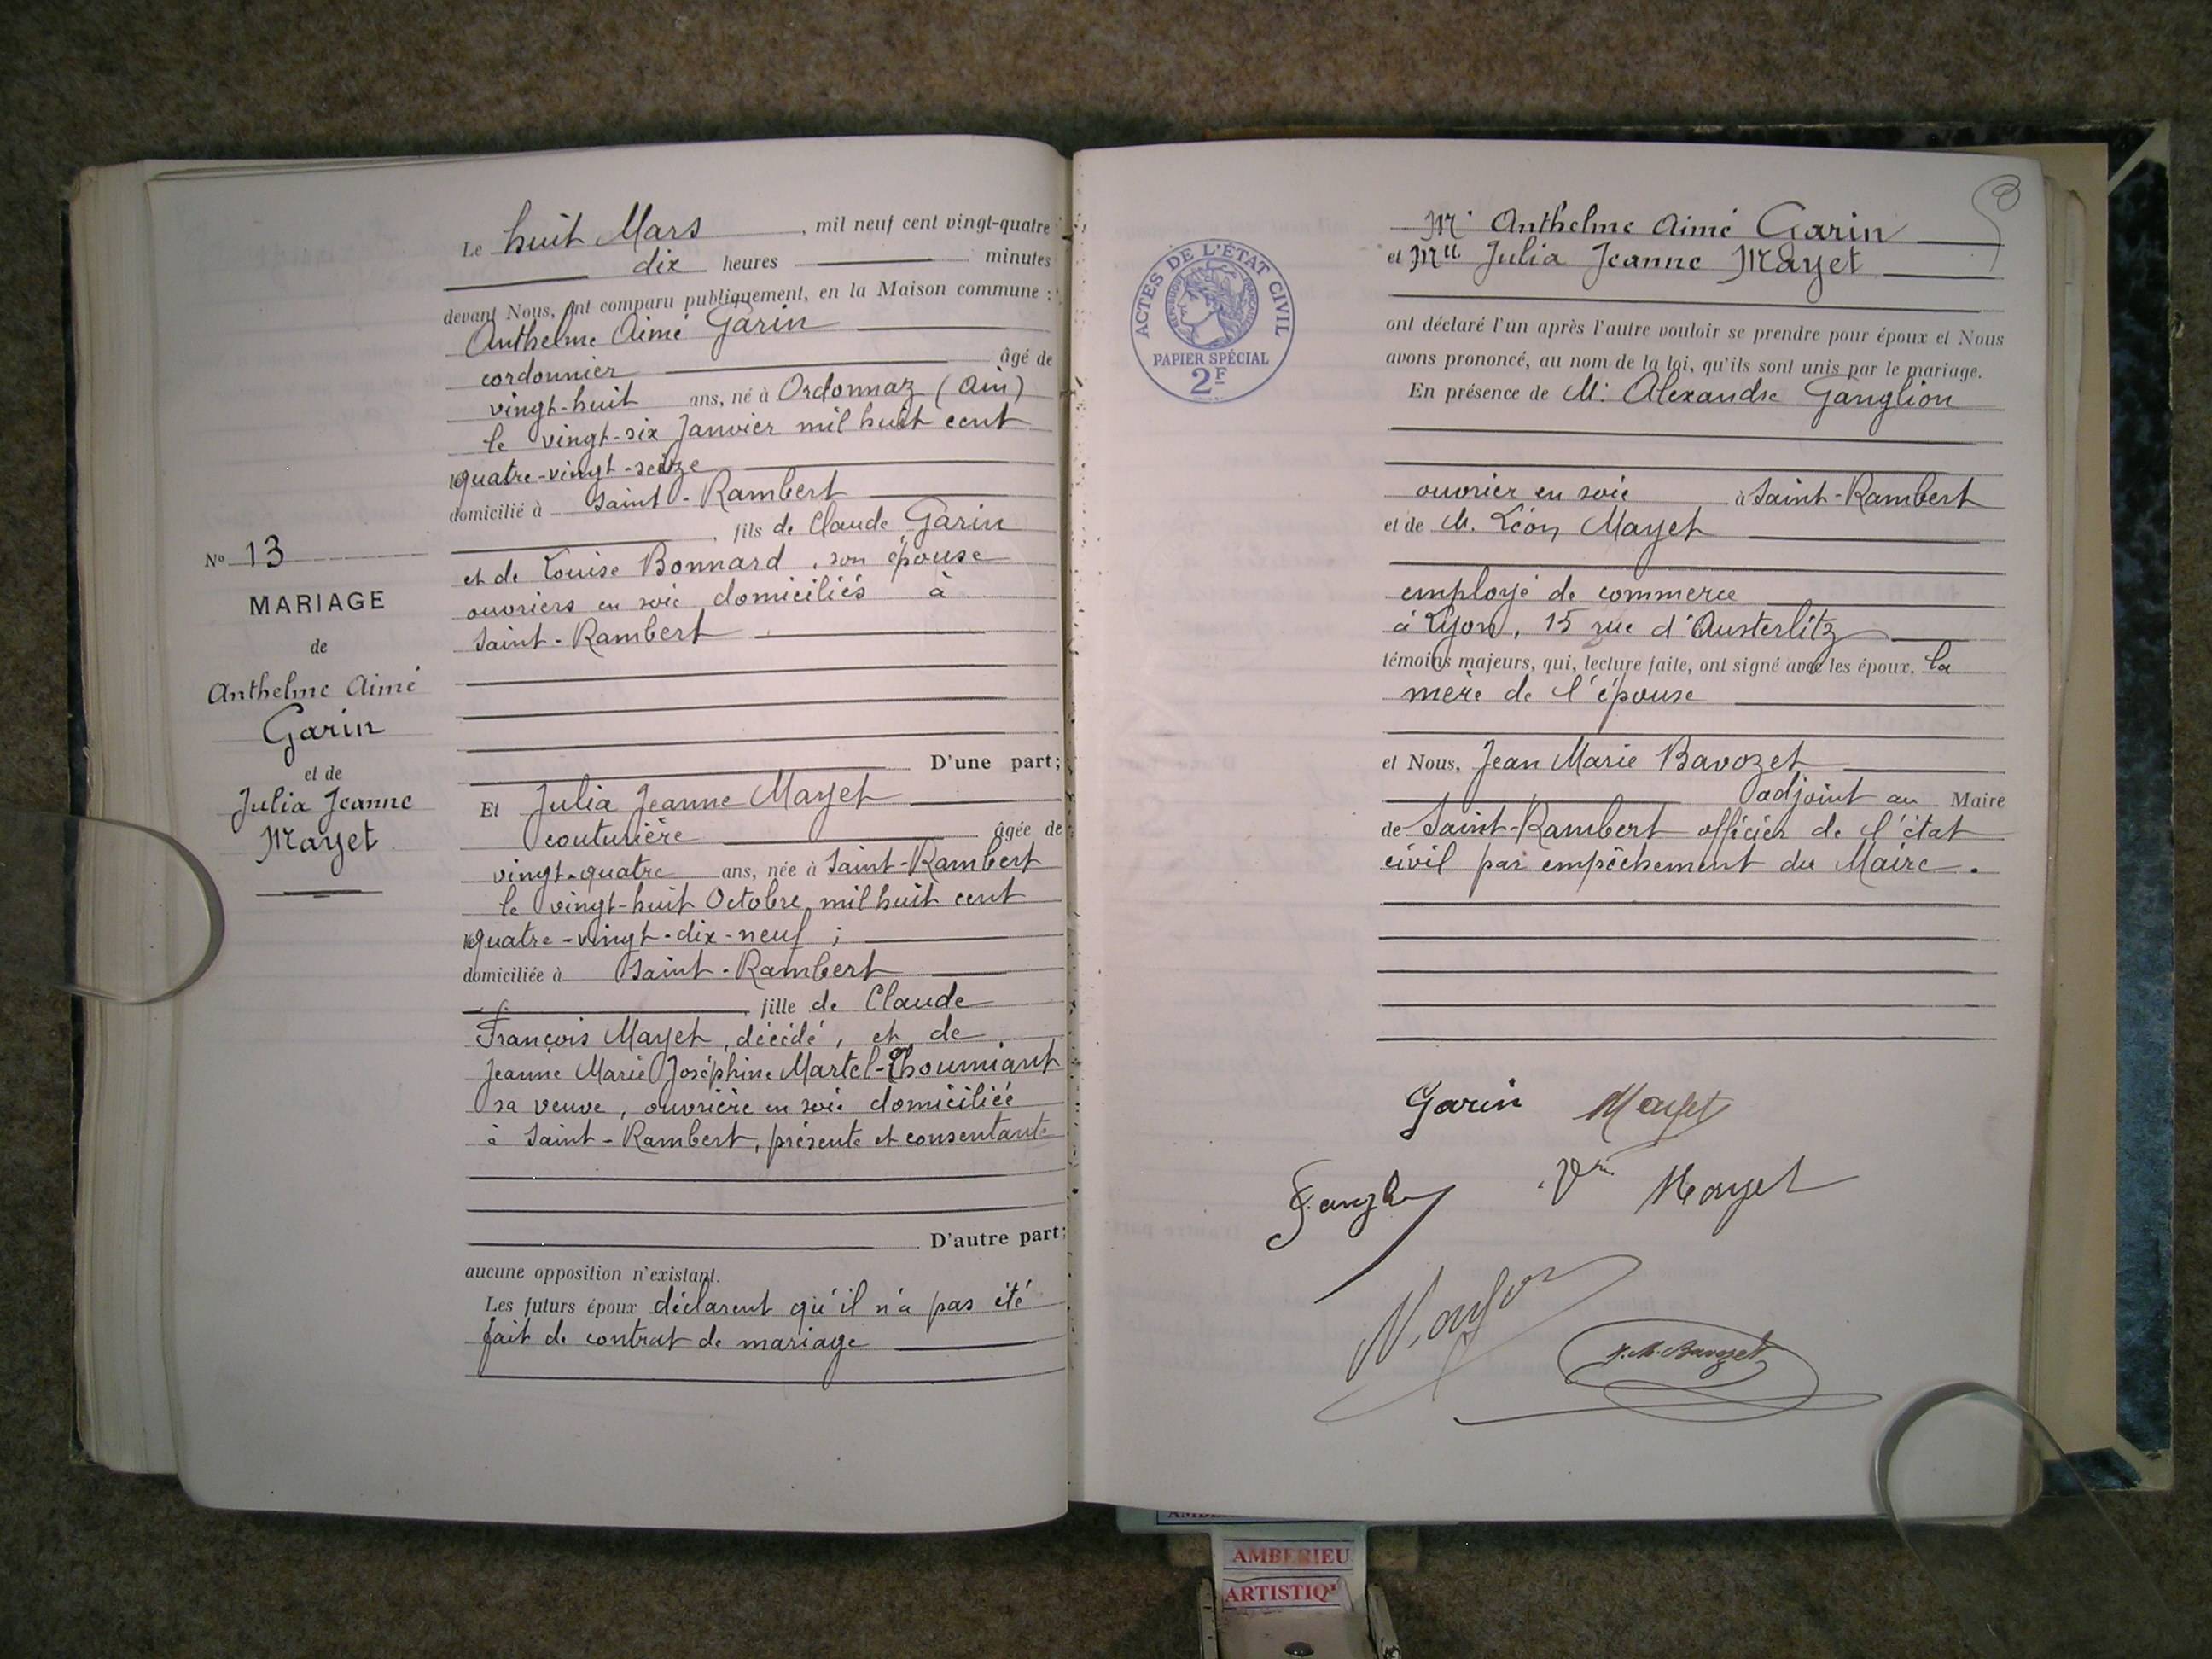 Le huit Mars, mil neuf cent vingt-quatre
dix heures minutes
devant Nous, ont comparu publiquement, en la Maison commune :
Anthelme Aimé Garin
cordonnier âgé de
vingt-huit ans, né à Ordonnaz (Ain)
le vingt-six Janvier mil huit cent
quatre-vingt-seize
domicilié à Saint-Rambert
, fils de Claude Garin
et de Louise Bonnard, son épouse
ouvriers en soie domiciliés à
Saint-Rambert
D'une part;
Et Julia Jeanne Mayet
couturière âgée de
vingt-quatre ans, née à Saint-Rambert
le vingt-huit Octobre mil huit cent
quatre-vingt-dix-neuf ;
domiciliée à Saint-Rambert
, fille de Claude
François Mayet, décédé, et de
Jeanne Marie Joséphine Martel-Thoumiant
sa veuve, ouvrière en soie domiciliée
à Saint-Rambert, présente et consentante
D'autre part;
aucune opposition n'existant.
Les futurs époux déclarent qu'il n'a pas été
fait de contrat de mariage
No 13
MARIAGE
de
Anthelme Aimé
Garin
et de
Julia Jeanne
Mayet
ACTES DE L'ÉTAT CIVIL
RÉPUBLIQUE FRANÇAISE
PAPIER SPÉCIAL
2F
Mr Anthelme Aimé Garin
et Mlle Julia Jeanne Mayet
ont déclaré l'un après l'autre vouloir se prendre pour époux et Nous
avons prononcé, au nom de la loi, qu'ils sont unis par le mariage.
En présence de M. Alexandre Ganglion
ouvrier en soie à Saint-Rambert
et de M. Léon Mayet
employé de commerce
à Lyon, 15 rue d'Austerlitz
témoins majeurs, qui, lecture faite, ont signé avec les époux, la
mère de l'épouse
et Nous, Jean Marie Bavozet
adjoint au Maire
de Saint-Rambert officier de l'état
civil par empêchement du Maire.
Garin Mayet
Vve Mayet
J. M. Bavozet
AMBERIEU
ARTISTIQ